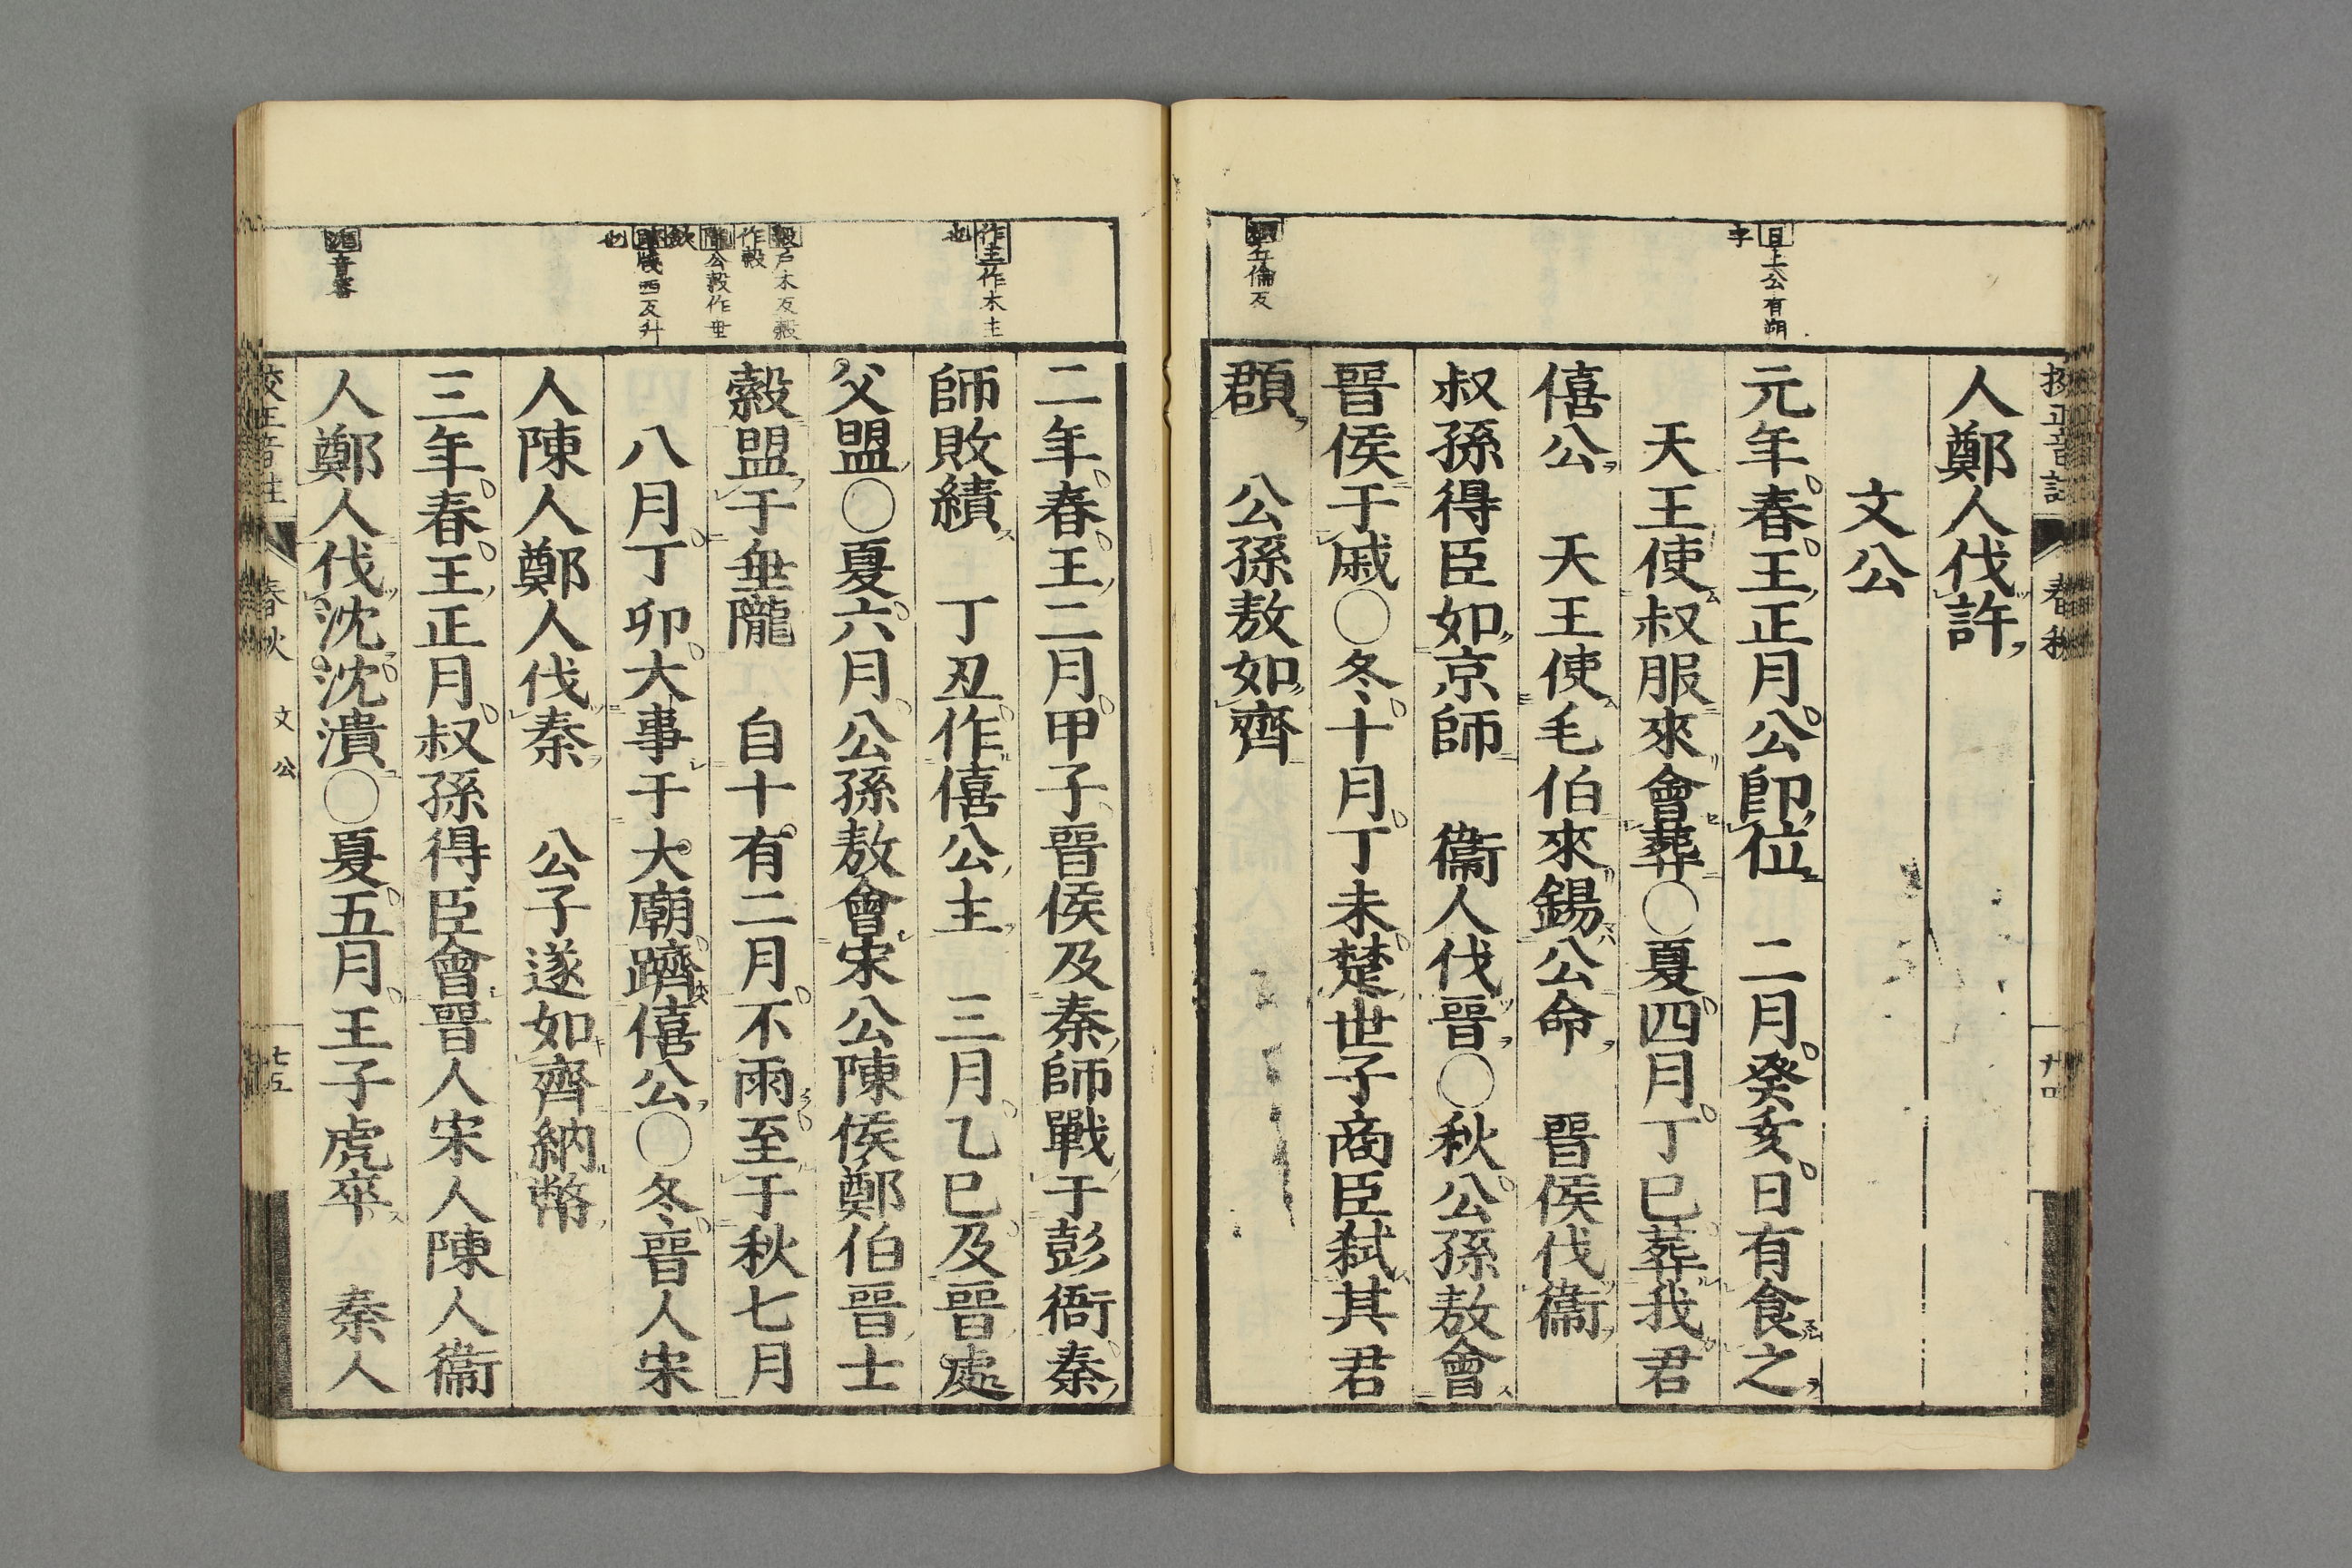 人鄭人伐許
文公
元年春王正月公卽位　二月癸亥日有食之
天王使叔服來會葬○夏四月丁巳葬我君
僖公　天王使毛伯來錫公命　晉侯伐衞
叔孫得臣如京師　衞人伐晉○秋公孫敖會
晉侯于戚○冬十月丁未楚世子商臣弑其君
頵　公孫敖如齊
日上公有朔
字
五倫反
春秋
二年春王二月甲子晉侯及秦師戰于彭衙秦
師敗績　丁丑作僖公主　三月乙巳及晉處
父盟○夏六月公孫敖會宋公陳侯鄭伯晉士
縠盟于垂隴　自十有二月不雨至于秋七月
八月丁卯大事于大廟躋僖公○冬晉人宋
人陳人鄭人伐秦　公子遂如齊納幣
三年春王正月叔孫得臣會晉人宋人陳人衞
人鄭人伐沈沈潰○夏五月王子虎卒　秦人
作主作木主
也
縠戶木反穀
作縠
隴公穀作垂
斂
躋牋西反升
也
沈音審
校正音註　春秋　文公